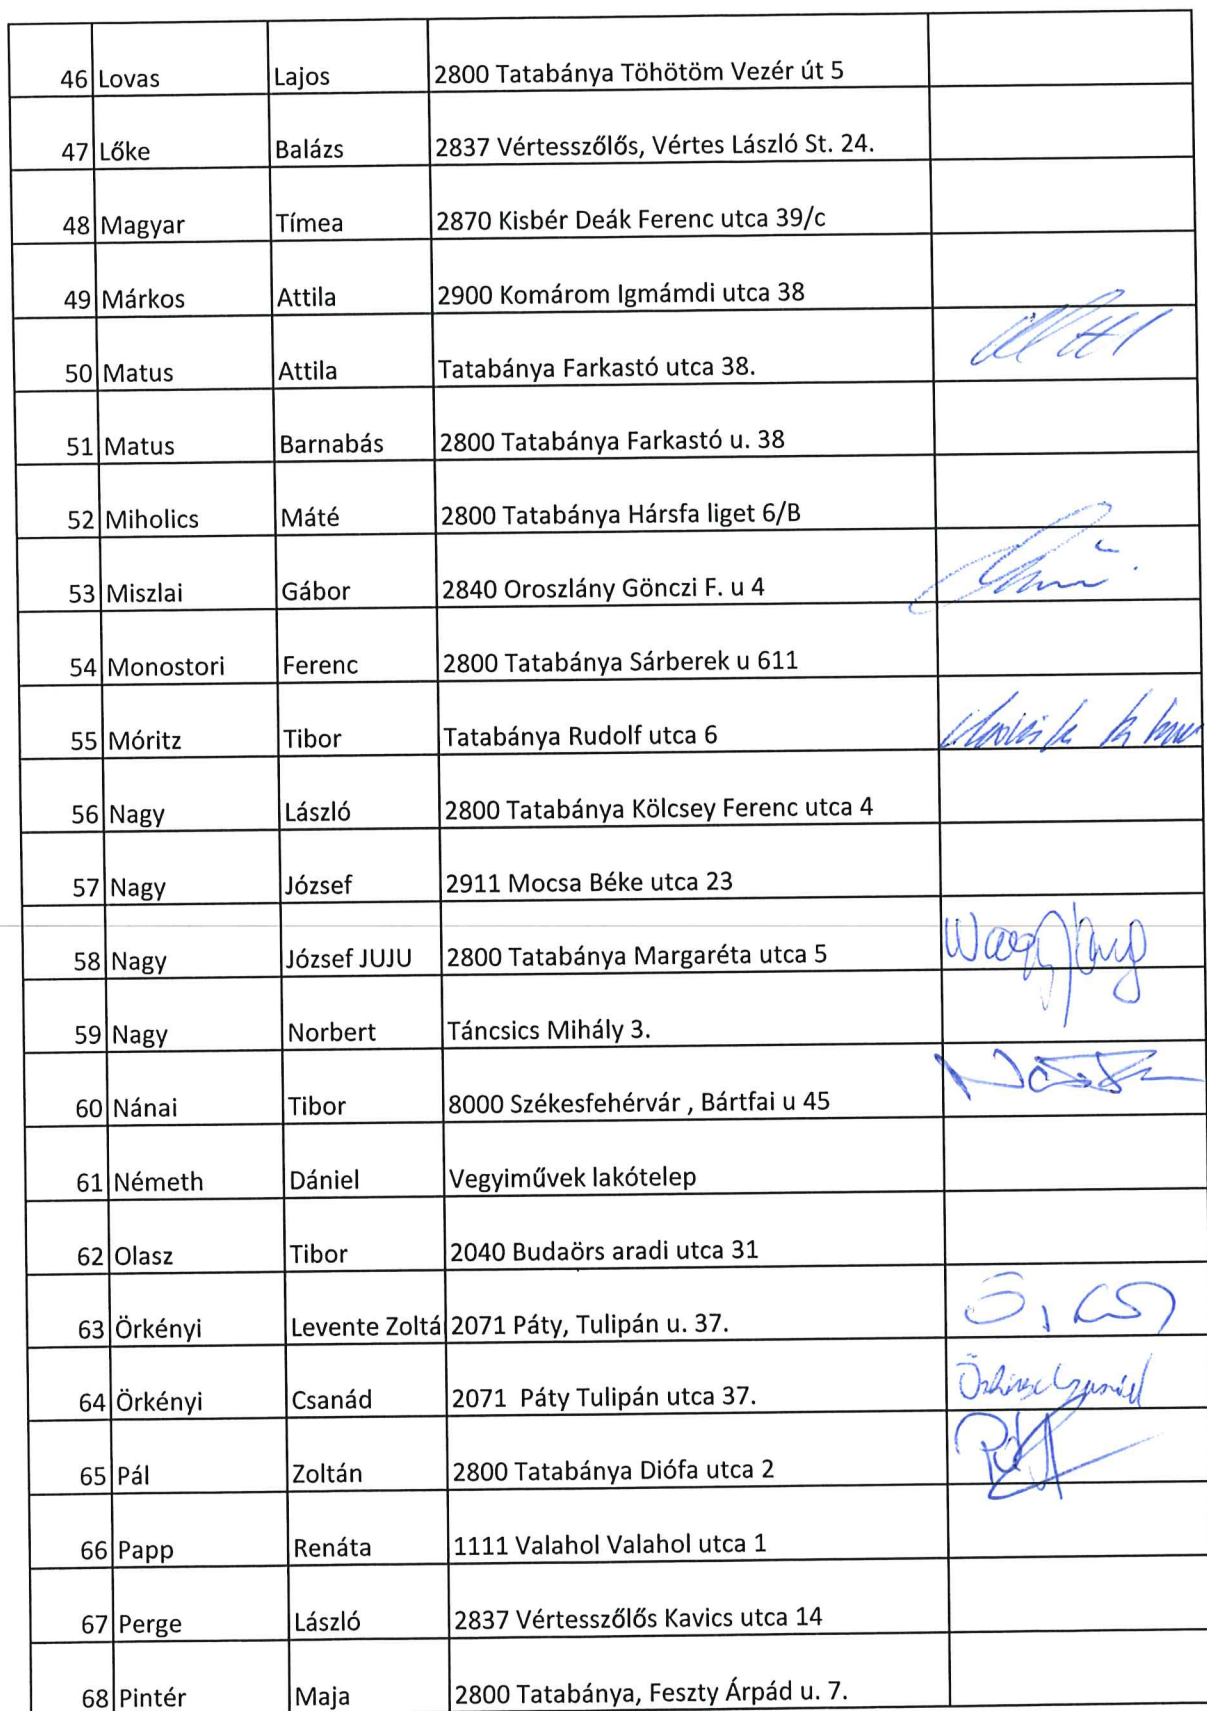 46 Lovas Lajos 2800 Tatabánya Töhötöm Vezér út 5
47 Lőke Balázs 2837 Vértesszőlős, Vértes László St. 24.
48 Magyar Tímea 2870 Kisbér Deák Ferenc utca 39/c
49 Márkos Attila 2900 Komárom Igmámdi utca 38
50 Matus Attila Tatabánya Farkastó utca 38.
51 Matus Barnabás 2800 Tatabánya Farkastó u. 38
52 Miholics Máté 2800 Tatabánya Hársfa liget 6/B
53 Miszlai Gábor 2840 Oroszlány Gönczi F. u 4
54 Monostori Ferenc 2800 Tatabánya Sárberek u 611
55 Móritz Tibor Tatabánya Rudolf utca 6
56 Nagy László 2800 Tatabánya Kölcsey Ferenc utca 4
57 Nagy József 2911 Mocsa Béke utca 23
58 Nagy József JUJU 2800 Tatabánya Margaréta utca 5
59 Nagy Norbert Táncsics Mihály 3.
60 Nánai Tibor 8000 Székesfehérvár , Bártfai u 45
61 Németh Dániel Vegyiművek lakótelep
62 Olasz Tibor 2040 Budaörs aradi utca 31
63 Örkényi Levente Zoltá 2071 Páty, Tulipán u. 37.
64 Örkényi Csanád 2071 Páty Tulipán utca 37.
65 Pál Zoltán 2800 Tatabánya Diófa utca 2
66 Papp Renáta 1111 Valahol Valahol utca 1
67 Perge László 2837 Vértesszőlős Kavics utca 14
68 Pintér Maja 2800 Tatabánya, Feszty Árpád u. 7.